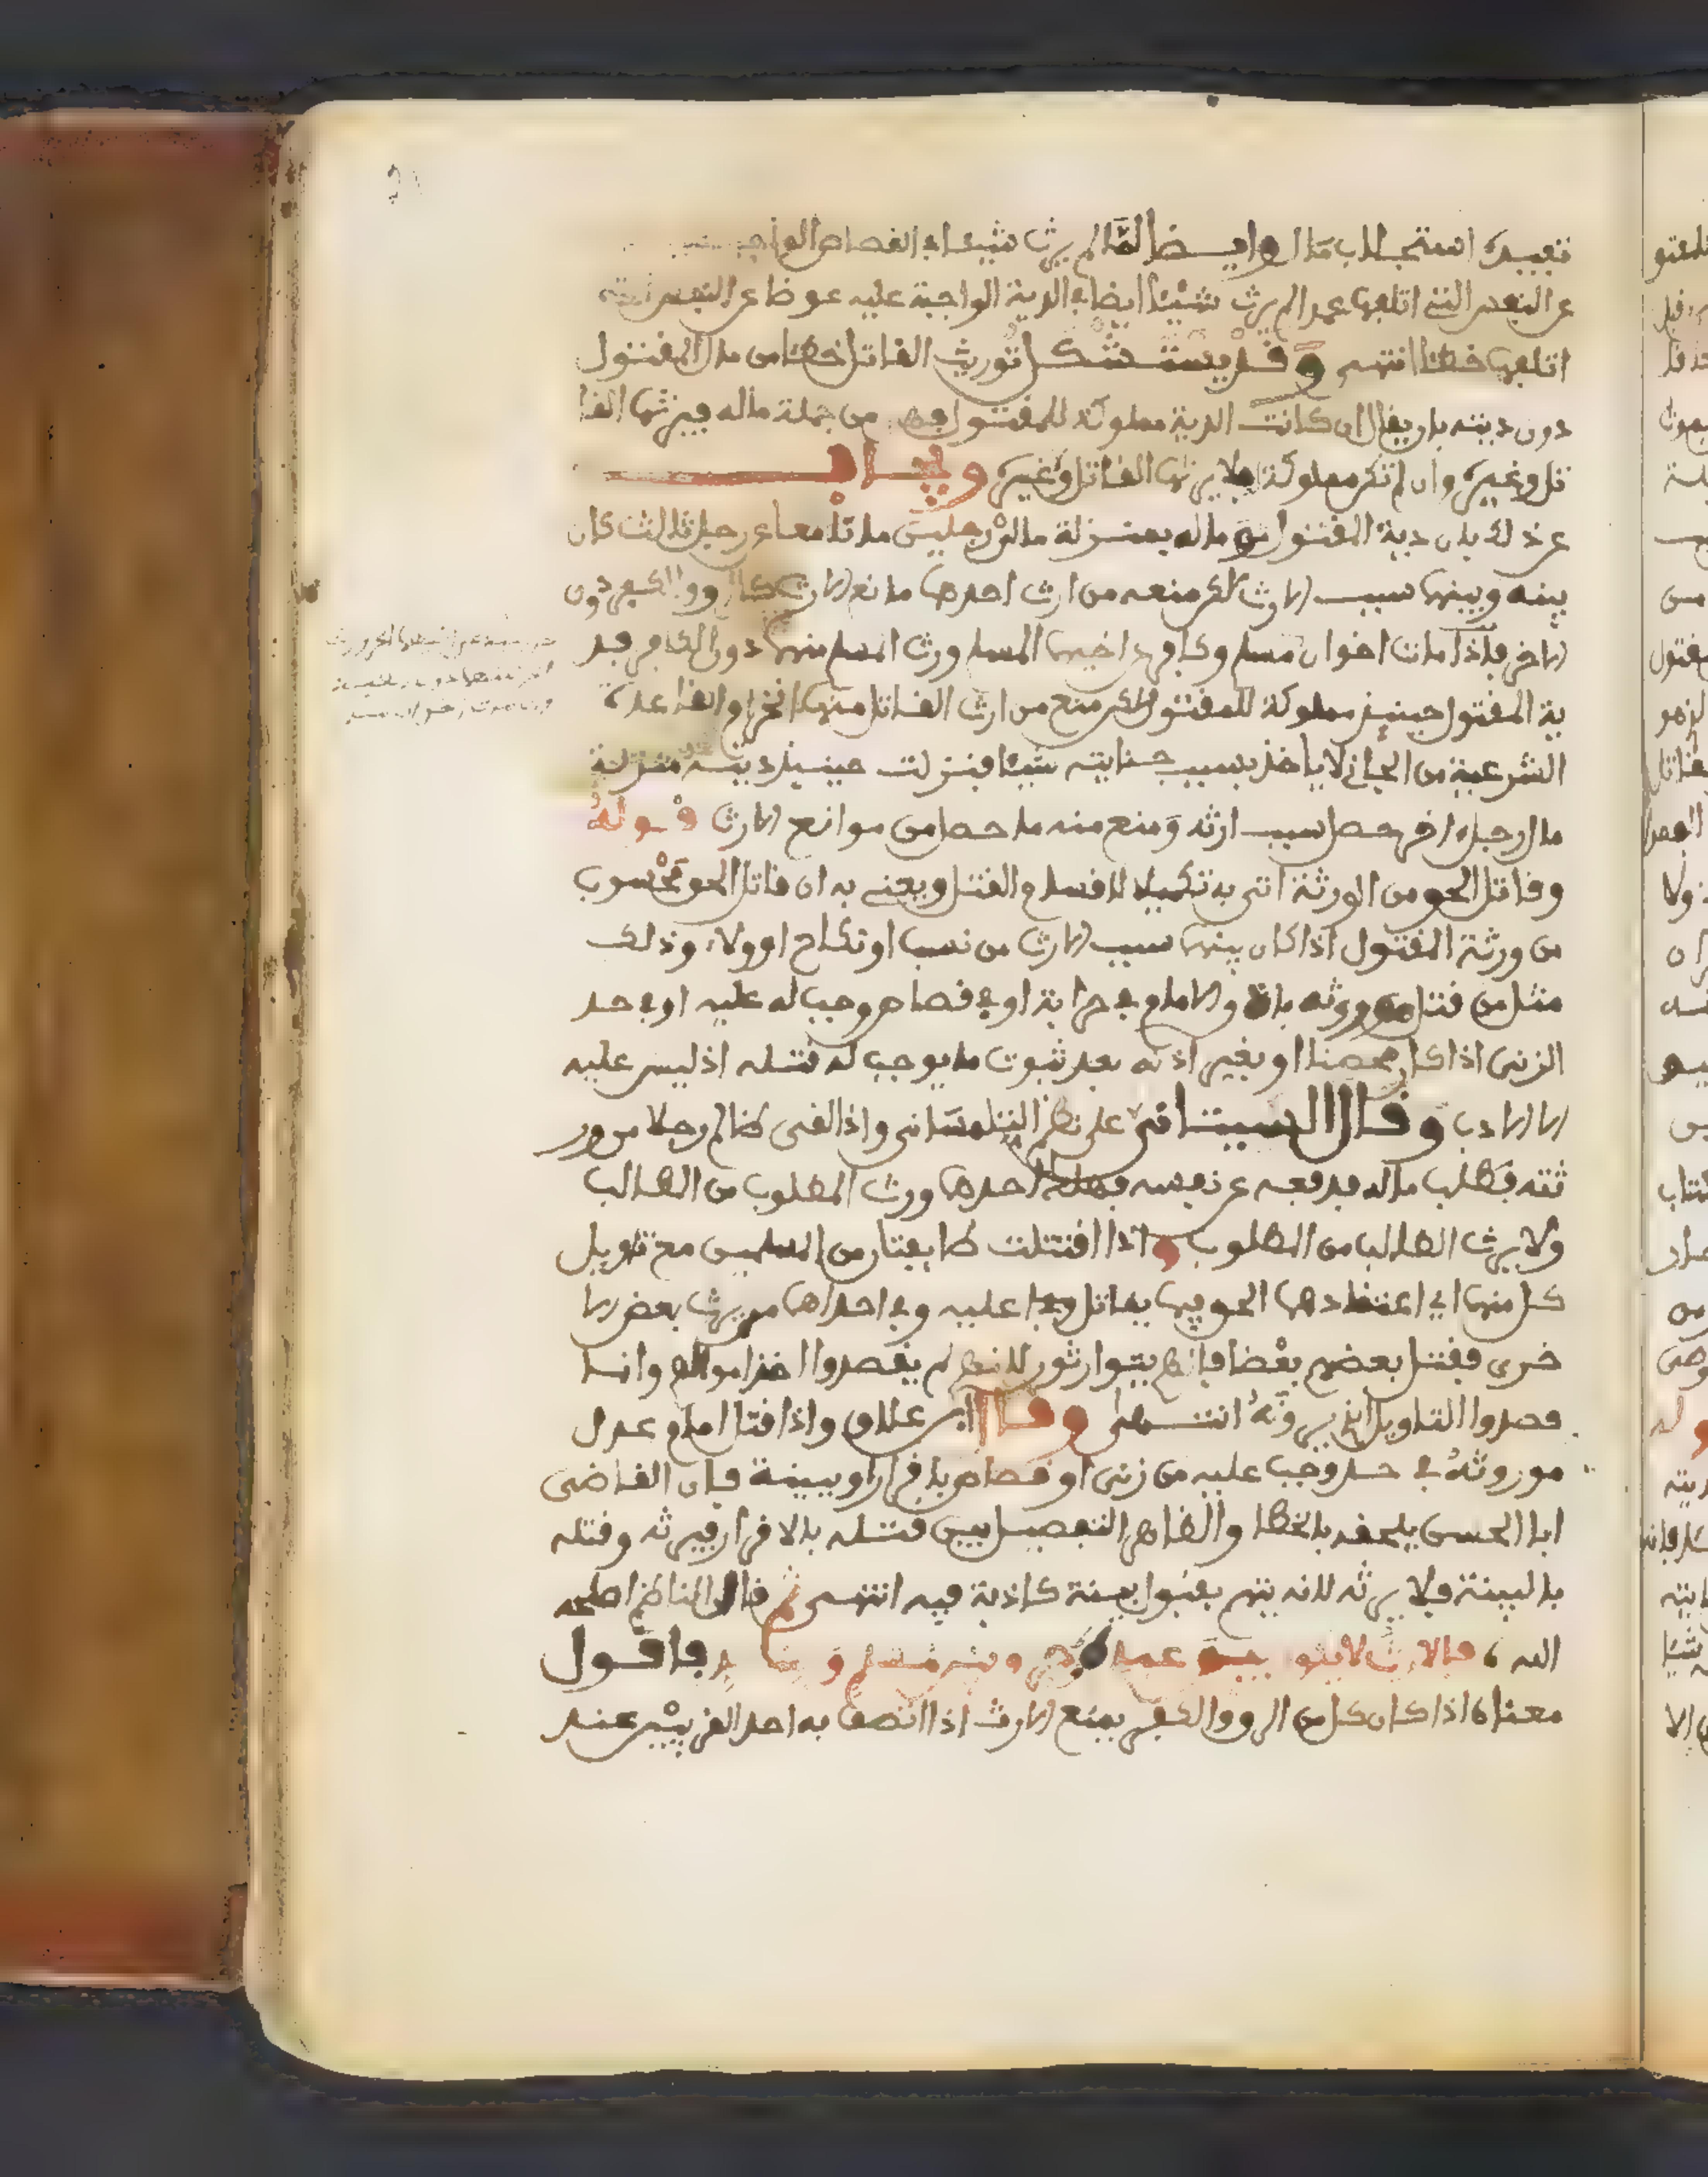 تعبيده استجلاب مال وايضا لما لم يرث شيئا في القصاص الواجب
عن النفس التي اتلفها عمدا لم يرث شيئا ايضا في الدية الواجبة عليه عوضا عن النفس التي
اتلفها خطئا انتهى وقد يستشكل توريث القاتل خطئا من مال المقتول
دون ديته بان يقال ان كانت الدية مملوكة للمقتول فهي من جملة ماله فيرثها القا
تل وغيره وان لم تكن مملوكة فلا يرثها القاتل وغيره ويجاب
عن ذلك بان دية المقتول من ماله بمنزلة مال رجلين ماتا معا عن رجل ثالث كان
بينه وبينهما سبب الارث لكن منعه من ارث احدهما مانع الارث كالرق والكفر دون
الاخر فاذا مات اخوان مسلم وكافر اخيهما المسلم ورث المسلم منهما دون الكافر فد
ية المقتول حينئذ مملوكة للمقتول لكن منع من ارث القاتل منها القاعدة
الشرعية من الجاني لا ياخذ بسبب جنايته شيئا فنزلت حينئذ ديته منزلة
مال رجل اخر حصل سبب ارثه ومنع منه ما حصل من موانع الارث قوله
وقاتل الحق من الورثة اتى به تكميلا لاقسام القتل ويعني به ان قاتل الحق محسوب
من ورثة المقتول اذا كان بينهما سبب الارث من نسب او نكاح او ولاء وذلك
مثل من قتل موروثه باذن الامام في حرابة او في قصاص وجب له عليه او في حد
الزنى اذا كان محصنا او بغير اذنه بعد ثبوت ما يوجب له قتله اذ ليس عليه
الا الادب وقال السيتاني على نظم التلمساني واذا لقى ظالم رجلا من ور
ثته فطلب ماله فدفعه عن نفسه فهلك احدهما ورث المطلوب من الطالب
ولا يرث الطالب من المطلوب واذا اقتتلت طايفتان من المسلمين مع تاويل
كل منهما اي اعتقادها الحق فيما يقاتل عليه وفي احداهما من يرث بعض الا
خرى فقتل بعضهم بعضا فانهم يتوارثون لانهم لم يقصدوا اخذ اموالهم وانما
قصدوا التاويل الذي يرونه انتهى وقال ابن علاق واذا قتل امام عدل
موروثه في حد وجب عليه من زنى او قصاص باقرار او ببينة فان القاضي
ابا الحسن يلحقه بالخطا والظاهر التفصيل بين قتله بالاقرار فيرثه وقتله
بالبينة فلا يرثه لانه يتهم بقبول بينة كاذبة فيه انتهى ثم قال الناظم اصلحه
الله فاقول
معناه اذا كان كل من الرق والكفر يمنع الارث اذا اتصف به احد القريبين عند